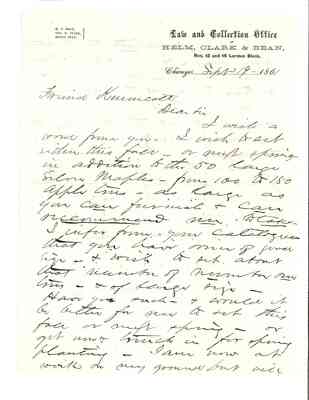 Law and Collection Office
OF
HELM, CLARK & BEAN,
Nos. 12 and 16 Larmon Block,
Chicago, Sept 9 186
Friend Kennicott,
Dear Sir
I wish a
word from you. I wish to set
either this fall - or next spring
in addition to the 50 large
Silver Maples - from 100 to 150
Apple trees - as large as
you can furnish & can
recommend me to take
I infer from your Catalogue
that you have some of good
size - & I wish to set about
that number of
trees - & of large size -
Have you such - & would it
be better for me to set this
fall or next spring - or
get now & trench in for spring
planting - I am now at
work on my ground but will